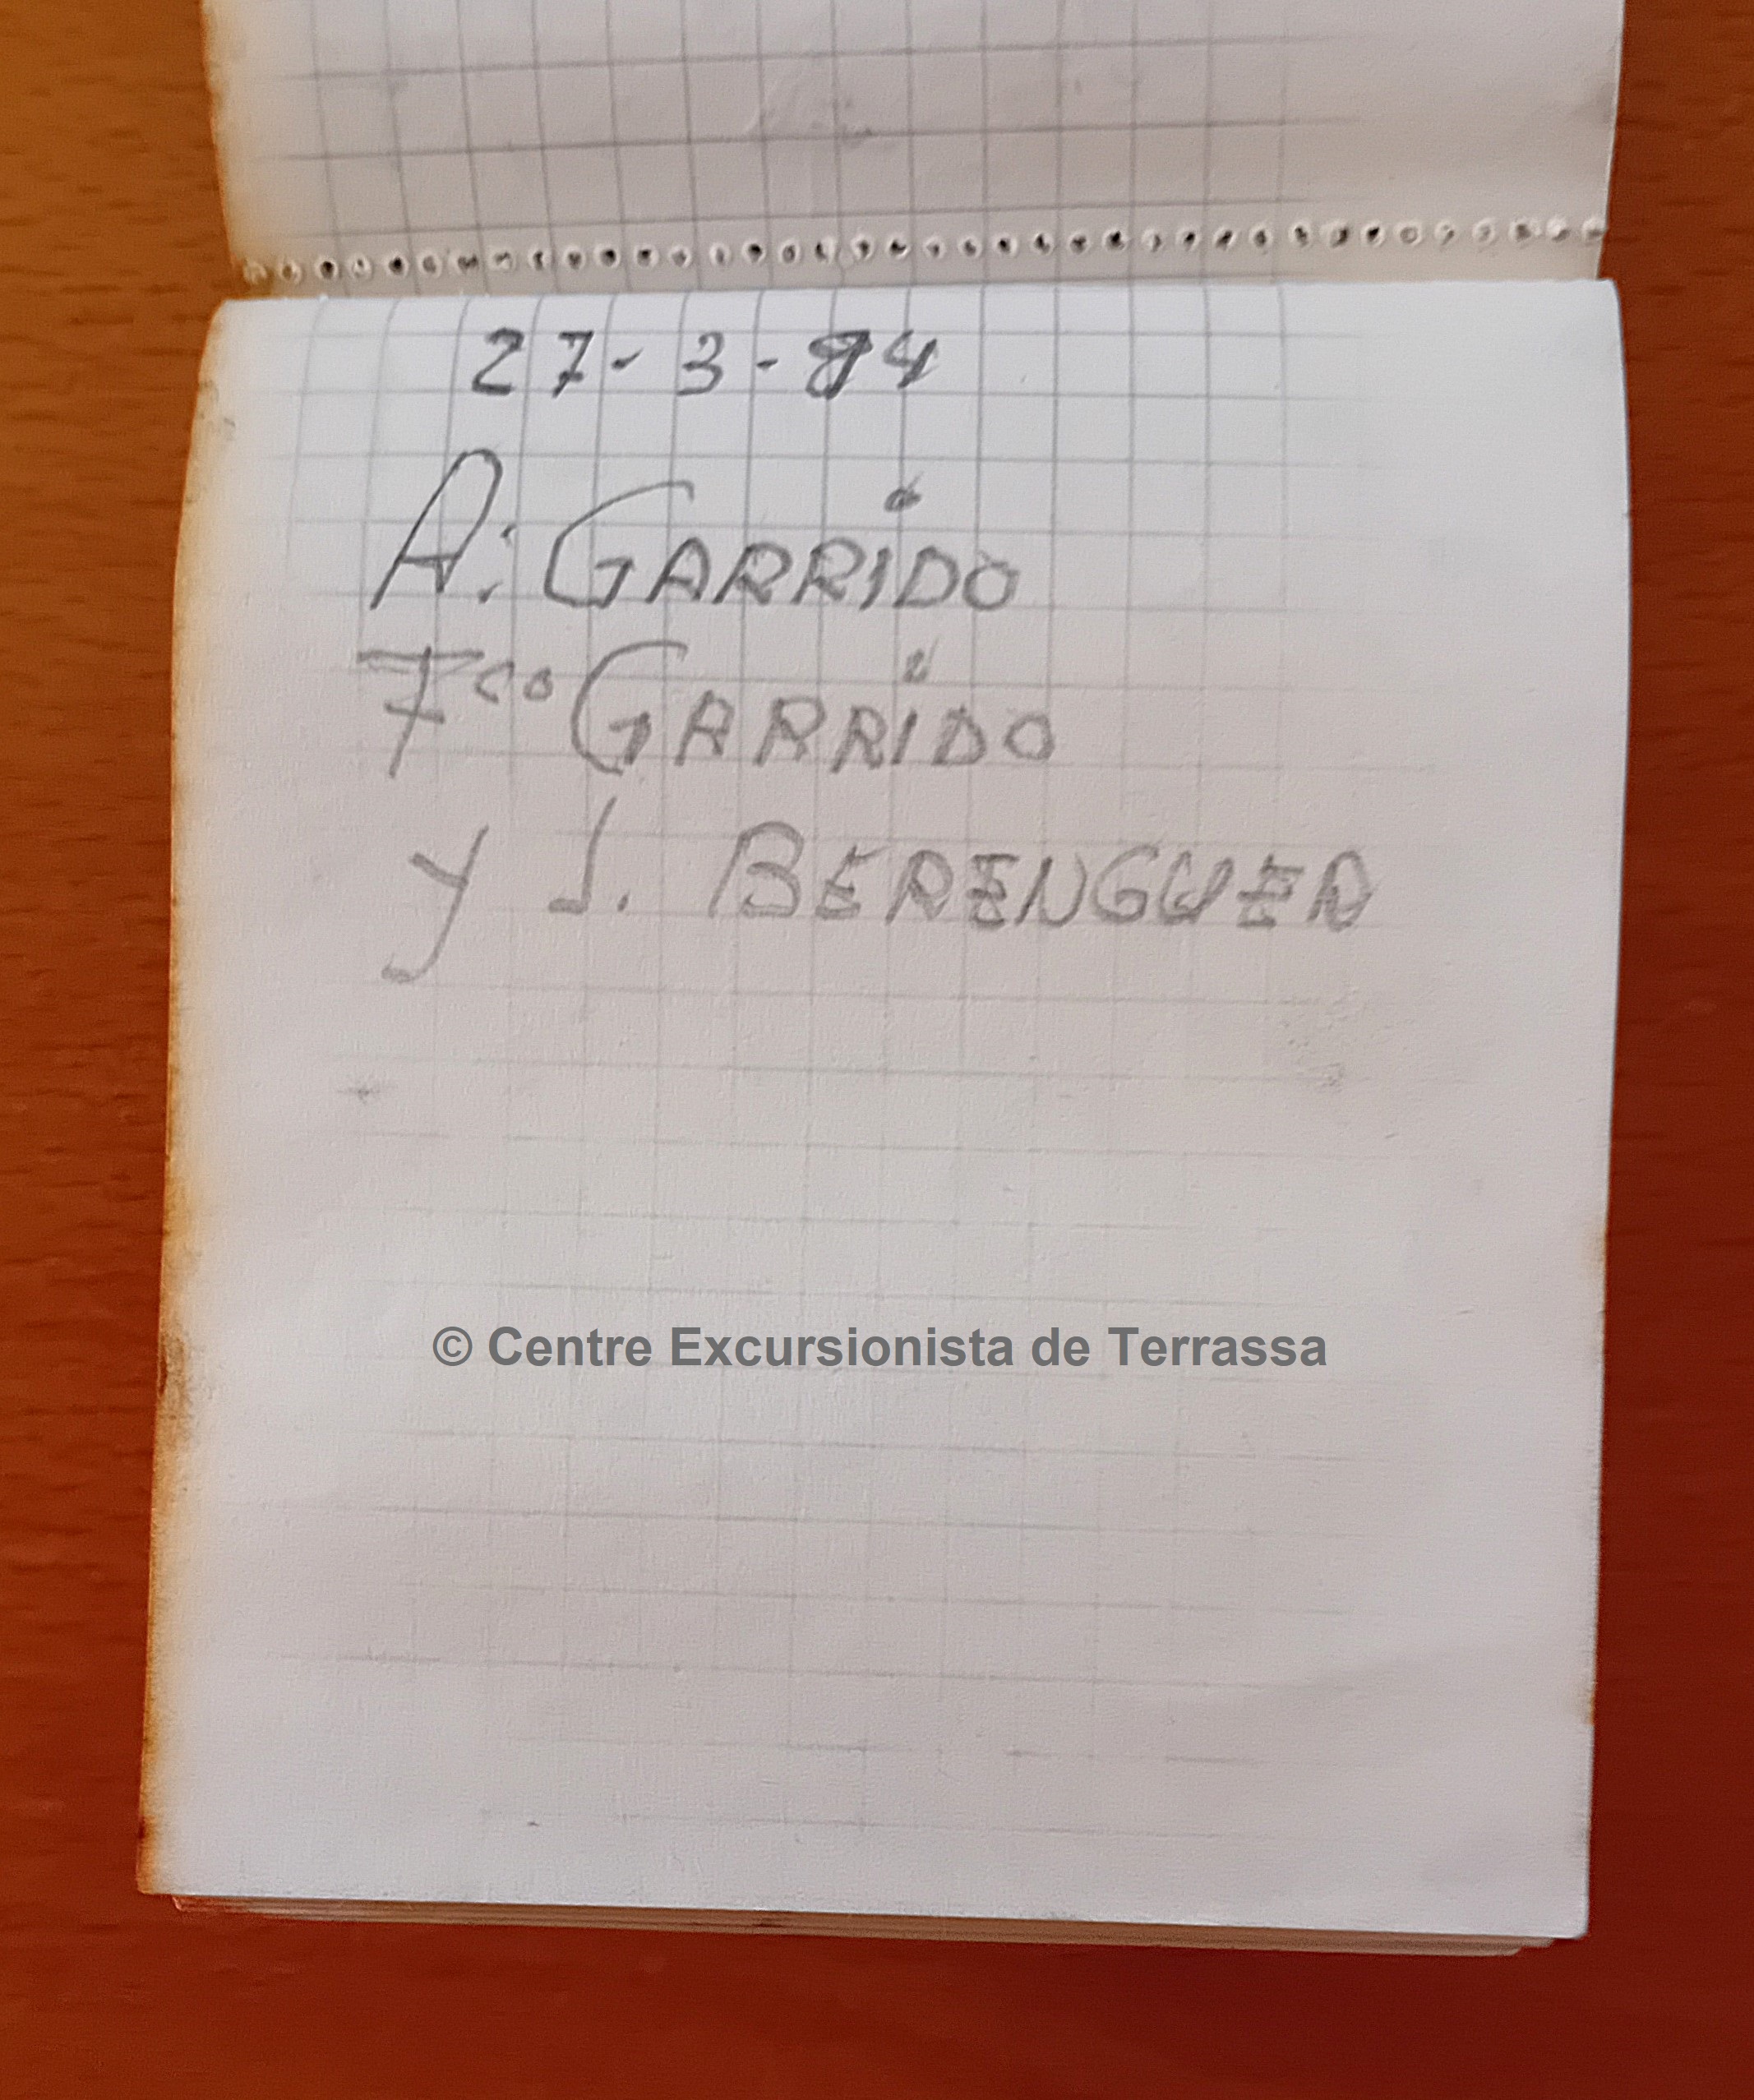 27-3-84
A. GARRIDO
Fco GARRIDO
y J. BERENGUER
© Centre Excursionista de Terrassa